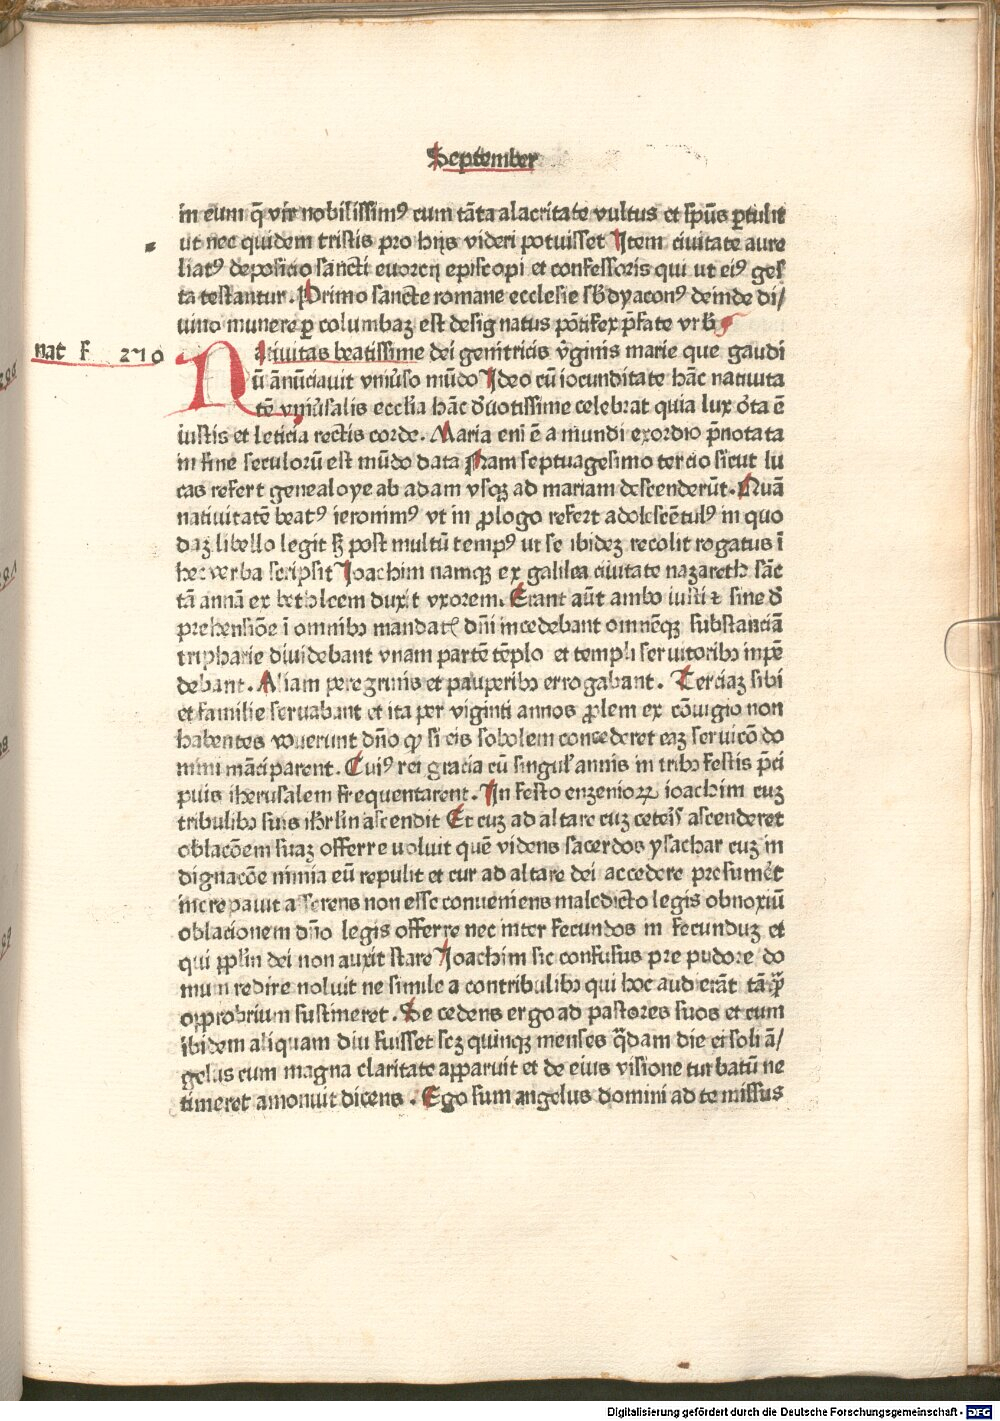 September
in eum q̄ vir nobilissimꝰ cum tāta alacritate vultus et sp̄us ꝑtulit
ut nec quidem tristis pro hijs videri potuisset Item ciuitate aure
liatꝰ deposicio sancti euorcij episcopi et confessoris qui ut eiꝰ ges
ta testantur. Primo sancte romane ecclesie sb̄dyaconꝰ deinde di/
uino munere ꝑ columbaꝫ est designatus pōtifex p̄fate vrb
nat f 270
Natiuitas beatissime dei genitricis v̄ginis marie que gaudi
ū ān̄uciauit vniūso mūdo Ideo cū iocunditate hāc natiuita
tē vniūsalis eccl̄ia hāc d̄uotissime celebrat quia lux or̄ta ē
iustis et leticia rectis corde. Maria eni ē a mundi exordio p̄notata
in fine seculorū est mūdo data Nam septuagesimo tercio sicut lu
cas refert genealoye ab adam vsqꝫ ad mariam descenderūt. Quā
natiuitatē beatꝰ ieronimꝰ vt in ꝓlogo refert adolescētulꝰ in quo
daꝫ libello legit sꝫ post multū tempꝰ ut se ibideꝫ recolit rogatus ī
hec verba scripsit Ioachim namqꝫ ex galilea ciuitate nazareth sāc
tā annā ex bethleem duxit vxorem. Erant aūt ambo iusti ꝛ sine d̄
prehensiōe ī omnibꝫ mandatꝭ dn̄i incedebant omnēqꝫ substanciā
tripharie diuidebant vnam partē tēplo et templi seruitoribꝫ inpē
debant. Aliam peregrinis et pauperibꝫ errogabant. Terciaꝫ sibi
et familie seruabant et ita per viginti annos ꝓlem ex cōiugio non
habentes vouerunt dn̄o ꝙ si eis sobolem concederet eaꝫ seruicō do
mini māciparent. Cuiꝰ rei gracia cū singul̄ annis in tribꝫ festis p̄ci
puis iherusalem frequentarent. In festo enzenioꝝ ioachim cuꝫ
tribulibꝫ suis ihr̄lm ascendit Et cuꝫ ad altare cuꝫ ceteīs ascenderet
oblacōem suaꝫ offerre uoluit quē videns sacerdos ysachar cuꝫ in
dignacōe nimia eū repulit et cur ad altare dei accedere presumēt
increpauit asserens non esse conueniens maledicto legis obnoxiū
oblacionem dn̄o legis offerre nec inter fecundos in fecunduꝫ et
qui ꝑplm dei non auxit stare Ioachim sic confusus pre pudore do
mum redire noluit ne simile a contribulibꝫ qui hoc audierāt tāꝙ̄
opprobrium sustineret. Se cedens ergo ad pastores suos et cum
ibidem aliquam diu fuisset scꝫ quinqꝫ menses q̄dam die ei soli ā/
gelus cum magna claritate apparuit et de eius visione turbatū ne
timeret amonuit dicens. Ego sum angelus domini ad te missus
Digitalisierung gefördert durch die Deutsche Forschungsgemeinschaft - DFG